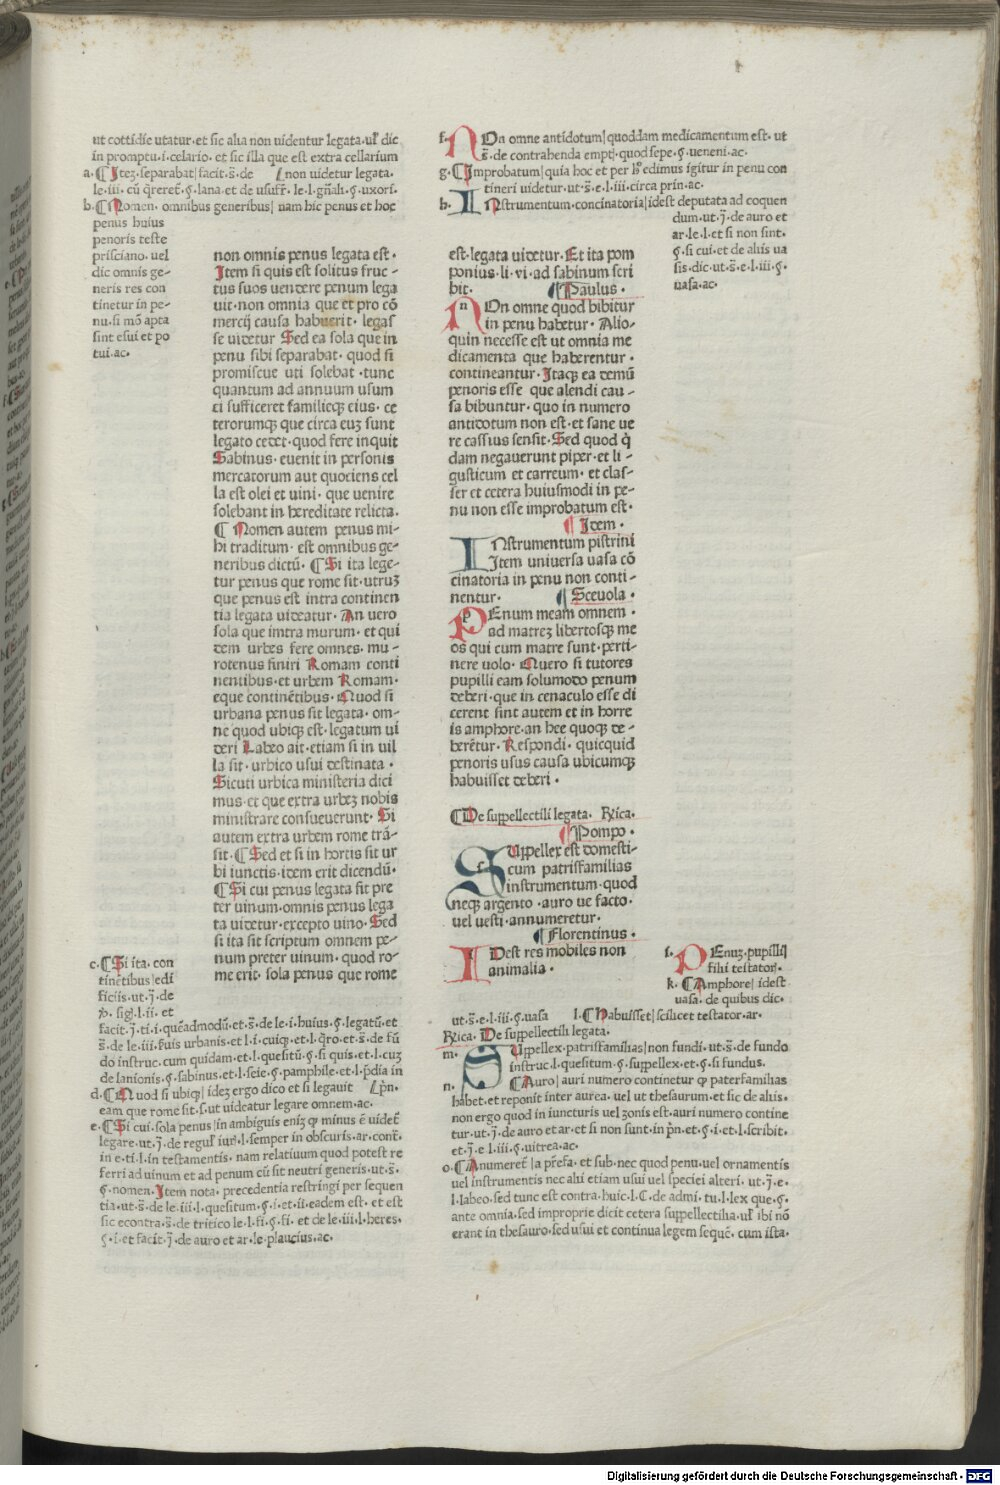 ut cottidie utatur·et sic alia non uidentur legata·ul̃ dic
in promptu·i·celario·et sic illa que est extra cellarium
a·¶Iteꝫ·separabat|facit·s̃·de [non uidetur legata·
le·iii·cũ q̃reret̃·§·lana·et de usufr̃·le·l·gñali·§·uxori·
b·¶Nomen·omnibus generibus|nam hic penus et hoc
penus huius
penoris teste
prisciano·uel
dic omnis ge-
neris res con
tinetur in pe-
nu·si mõ apta
sint esui et po
tui·ac·
non omnis penus legata est·
Item si quis est solitus fruc-
tus suos uendere penum lega
uit·non omnia que et pro cõ
mercij causa habuerit·legas
se uidetur Sed ea sola que in
penu sibi separabat·quod si
promiscue uti solebat·tunc
quantum ad annuum usum
ei sufficeret familieqꝫ eius·ce
terorumqꝫ que circa euꝫ sunt
legato cedet·quod fere inquit
Sabinus·euenit in personis
mercatorum aut quociens cel
la est olei et uini·que uenire
solebant in hereditate relicta·
¶ Nomen autem penus mi-
hi traditum·est omnibus ge-
neribus dictũ·¶Si ita lege-
tur penus que rome sit·utruꝫ
que penus est intra continen
tia legata uideatur·An uero
sola que imtra murum·et qui
dem urbes fere omnes·mu-
rotenus finiri Romam conti
nentibus·et urbem Romam·
eque continẽtibus·Quod si
urbana penus sit legata·om-
ne quod ubiqꝫ est·legatum ui
deri Labeo ait·etiam si in uil
la sit·urbico usui destinata·
Sicuti urbica ministeria dici
mus·et que extra urbeꝫ nobis
ministrare consueuerunt·Si
autem extra urbem rome trã-
sit·¶Sed et si in hortis sit ur
bi iunctis·idem erit dicendũ·
¶Si cui penus legata sit pre
ter uinum·omnis penus lega
ta uidetur·excepto uino·Sed
si ita sit scriptum omnem pe-
num preter uinum·quod ro-
me erit·sola penus que rome
c·¶Si ita·con
tinẽtibus|edi
ficiis·ut·j̃·de
sig̃·l·ii·et
facit·j̃·ti·i·quẽadmodũ·et·s̃·de le·i·huius·§·legatũ·et
s̃·de le·iii·ſuis urbanis·et l·i·cuiqꝫ·et·l·q̃ro·et·s̃·de fũ
do instruc·cum quidam·et·l·quesitũ·§·si quis·et·l·cuꝫ
de lanionis·§·sabinus·et·l·seie·§·pamphile·et·l·p̃dia in
d·¶Quod si ubiqꝫ|ideꝫ ergo dico et si legauit [p̃n·
eam que rome sit·s·ut uideatur legare omnem·ac·
e·¶Si cui·sola penus|in ambiguis eniꝫ qꝫ minus ẽ uidet̃
legare·ut·j̃·de regul̃ iur̃·l·semper in obscuris·ar·cont̃·
in·e·ti·l·in testamentis·nam relatiuum quod potest re
ferri ad uinum et ad penum cũ sit neutri generis·ut·s̃·
§·nomen·Item nota·precedentia restringi per sequen
tia·ut·s̃·de le·iii·l·quesitum·§·i·et·ii·eadem est·et est
sic econtra·s̃·de tritico le·l·fi·§·fi·et de le·iii·l·heres·
§·i·et facit·j̃·de auro et ar·le·plaucius·ac·
f·NOn omne antidotum|quoddam medicamentum est·ut
s̃·de contrahenda emptj·quod sepe·§·ueneni·ac·
g·¶Improbatum|quia hoc et per h̃s edimus igitur in penu con
tineri uidetur·ut·s̃·e·l·iii·circa prin·ac·
h·INstrumentum·concinatoria|idest deputata ad coquen
dum·ut·j̃·de auro et
ar·le·l·et si non sint·
§·si cui·et de aliis ua
sis·dic·ut·s̃·e·l·iii·§·
uasa·ac·
est·legata uidetur·Et ita pom
ponius·li·vi·ad sabinum scri
bit· ¶Paulus·
NOn omne quod bibitur
in penu habetur·Alio-
quin necesse est ut omnia me
dicamenta que haberentur·
contineantur·Itaqꝫ ea demũ
penoris esse que alendi cau-
sa bibuntur·quo in numero
antidotum non est·et sane ue
re cassius sensit·Sed quod q̃
dam negauerunt piper·et li-
gusticum et carreum·et clas-
ser et cetera huiusmodi in pe-
nu non esse improbatum est·
¶Idem·
INstrumentum pistrini
Item uniuersa uasa cõ
cinatoria in penu non conti-
nentur· ¶Sceuola·
PEnum meam omnem·
ad matreꝫ libertosqꝫ me
os qui cum matre sunt·perti-
nere uolo·Quero si tutores
pupilli eam solumodo penum
deberi·que in cenaculo esse di
cerent sint autem et in horre
is amphore·an hee quoqꝫ de-
berẽtur·Respondi·quicquid
penoris usus causa ubicumqꝫ
habuisset deberi·
¶De suppellectili legata· Rica·
¶Pompo·
SUppellex est domesti-
cum patrisfamilias
instrumentum·quod
neqꝫ argento·auro ue facto·
uel uesti·annumeretur·
¶Florentinus·
IDest res mobiles non
animalia·
i·PEnuꝫ·pupilli|
filii testatorj·
k·¶Amphore|idest
uasa·de quibus dic·
ut·s̃·e·l·iii·§·uasa l·¶Habuisset|scilicet testator·ar·
Rica· De suppellectili legata·
m·SUppellex·patrisfamilias|non fundi·ut·s̃·de fundo
instruc·l·quesitum·§·suppellex·et·§·si fundus·
n·¶Auro|auri numero continetur qꝫ paterfamilias
habet·et reponit inter aurea·uel ut thesaurum·et sic de aliis·
non ergo quod in iuncturis uel zonis est·auri numero contine
tur·ut·j̃·de auro et ar·et si non sunt·in p̃n·et·§·i·et·l·scribit·
et·j̃·e·l·iii·§·uitrea·ac·
o·¶Anumeret̃|a p̃refa·et sub·nec quod penu·uel ornamentis
uel instrumentis nec alii etiam usui uel speciei alteri·ut·j̃·e·
l·labeo·sed tunc est contra·huic·l·C·de admi·tu·l·lex que·§·
ante omnia·sed improprie dicit cetera suppellectilia·ul̃ ibi nõ
erant in thesauro·sed usui et continua legem sequẽ·cum ista·
Digitalisierung gefördert durch die Deutsche Forschungsgemeinschaft · DFG